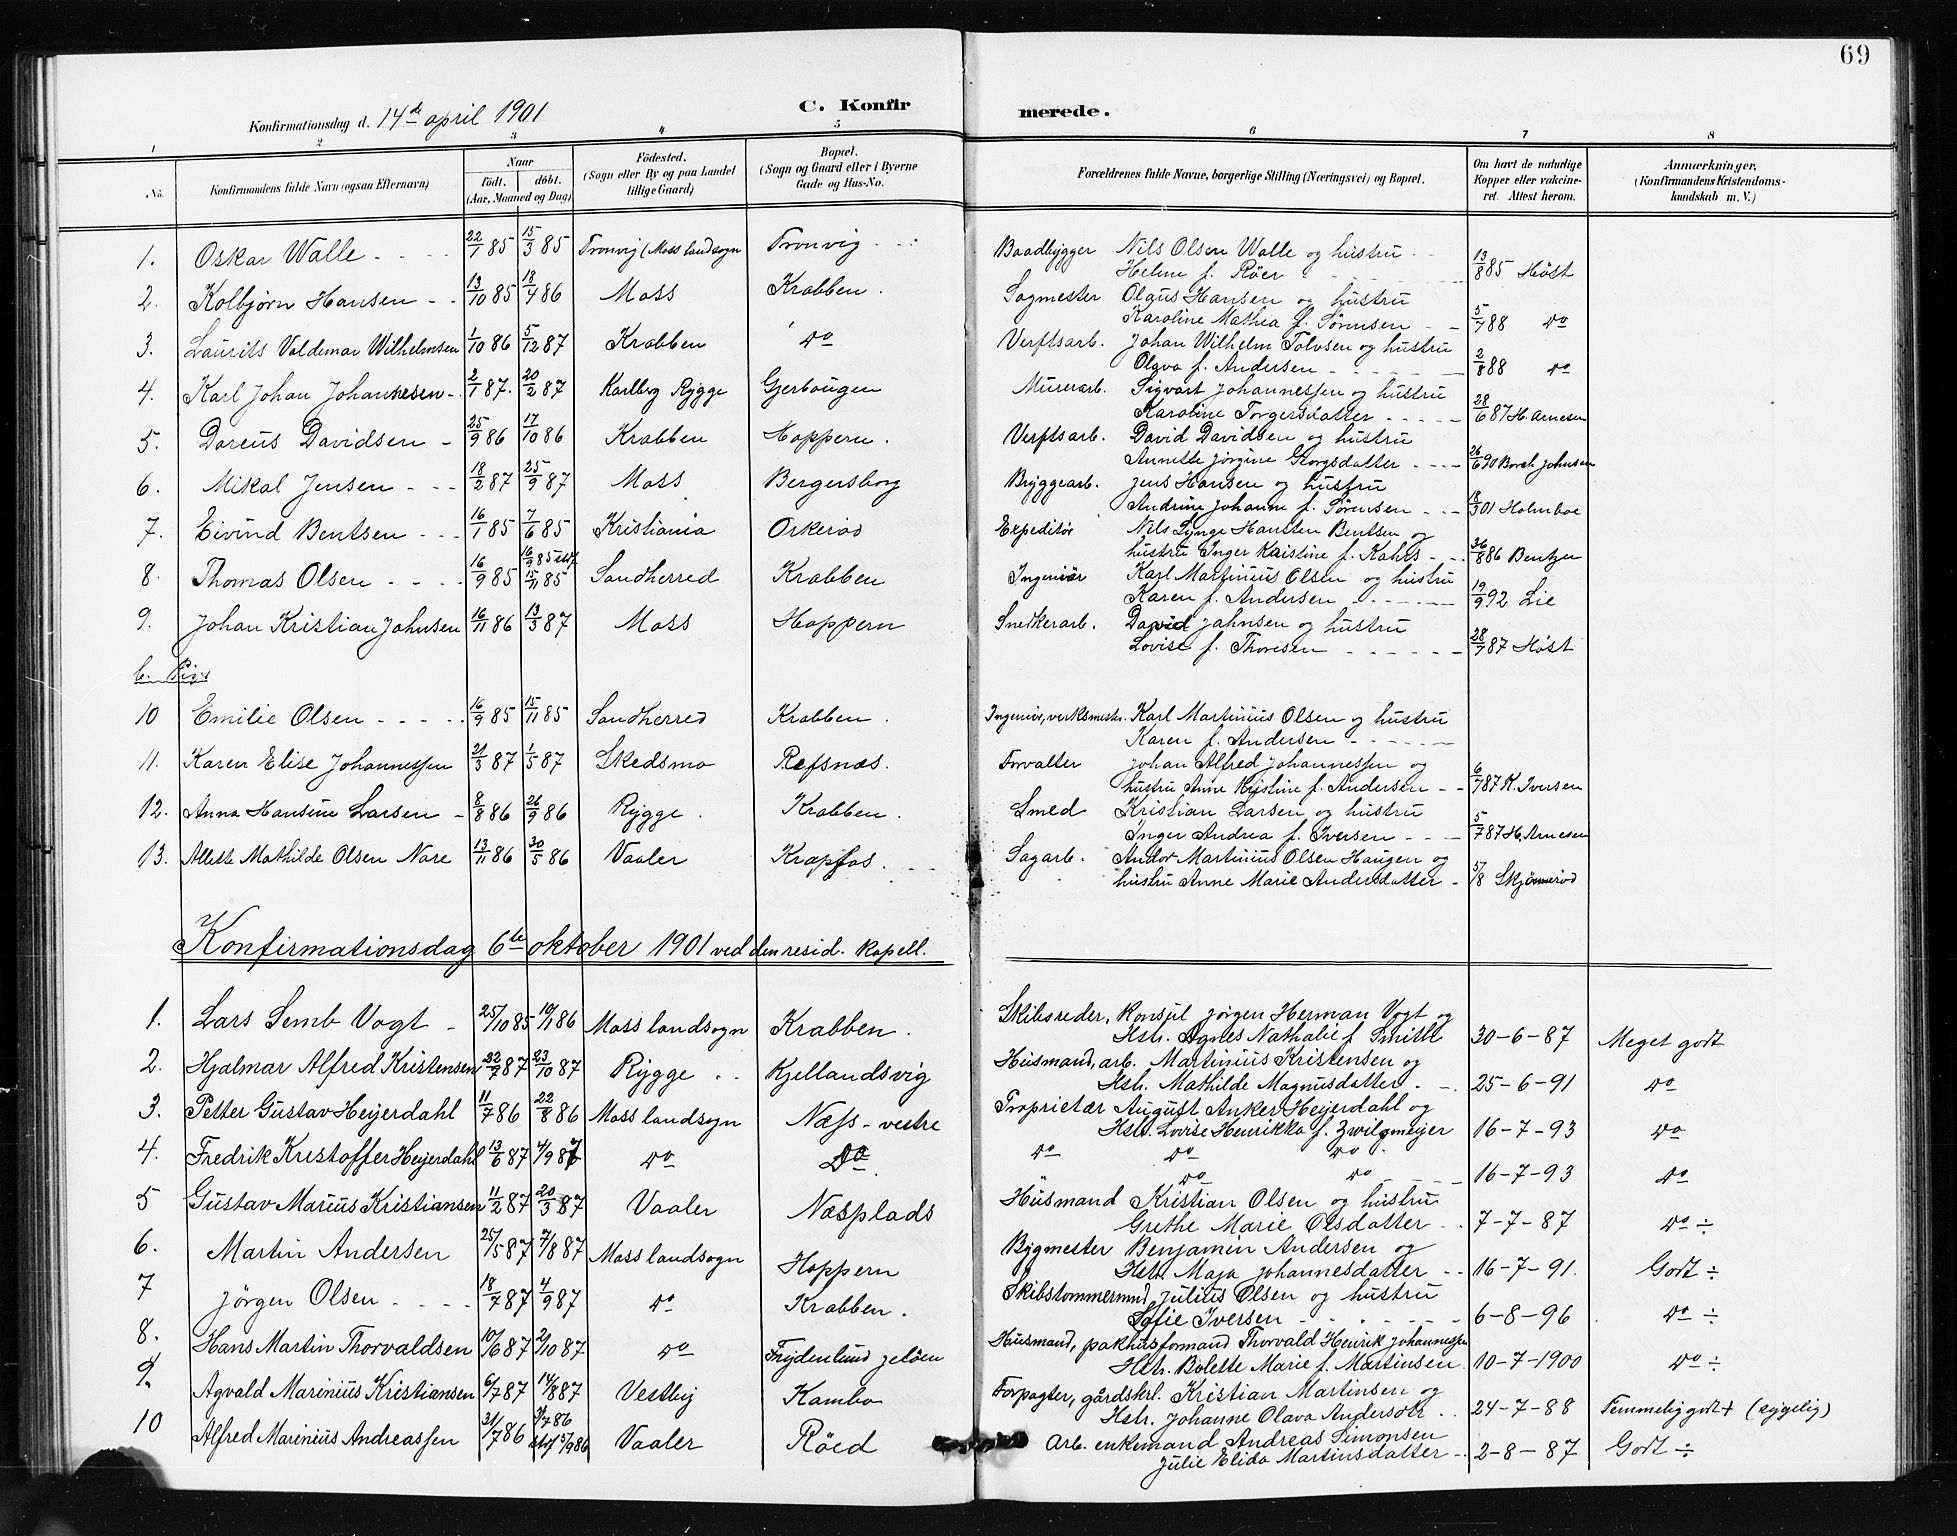 69
C. Konfirmerede.
Konfirmationsdag d. 14de april 1901
1 2 3 4 5 6 7 8
No. Konfirmandens fulde Navn (ogsaa Efternavn) Naar født. døbt. (Aar, Maaned og Dag) Födested. (Sogn eller By og paa Landet tillige Gaard) Bopæl. (Sogn og Gaard eller i Byerne Gade og Hus-No. Forældrenes fulde Navne, borgerlige Stilling (Næringsvei) og Bopæl. Om havt de naturlige Kopper eller vakcineret. Attest herom. Anmærkninger. (Konfirmandens Kristendomskundskab m. V.)
1. Oskar Walle 22/1 85 15/3 85 Tronvig (Moss landsogn Tronvig Baadbygger Nils Olsen Walle og hustru
Helene f. Röer 13/8 85 Höst
2. Kolbjørn Hansen 13/10 85 18/4 86 Moss Krabben Sagmester Olaus Hansen og hustru
Karoline Mathea f. Sørensen 5/7 88 do
3. Laurits Valdemar Wilhelmsen 1/10 86 5/12 87 Krabben do Verftsarb. Johan Wilhelm Tolvsen og hustru
Olava f. Andersen 2/8 88 do
4. Karl Johan Johannesen 2/1 87 20/2 87 Karlberg Rygge Gjerbougen Murerarb. Sigvart Johannessen og hustru
Karoline Torgersdatter 28/6 87 H. Arnesen
5. Doreus Davidsen 25/9 86 17/10 86 Krabben Hoppern Verftsarb. David Davidsen og hustru
Annette Jörgine Georgsdatter 26/6 90 Borch Johnsen
6. Mikal Jensen 18/2 87 25/9 87 Moss Bergersborg Bryggearb. Jens Hansen og hustru
Andrine Johanne f. Sørensen 18/3 01 Holmboe
7. Eivind Bentsen 16/1 85 7/6 85 Kristiania Orkerød Expeditör Nils Lynge Hansten Bentsen og
hustru Inger Kristine f. Kahrs /8 86 Bentzen
8. Thomas Olsen 16/9 85 16/9 85 stdf 15/11 85 Sandherred Krabben Ingeniör Karl Martinius Olsen og hustru
Karen f. Andersen 19/9 92 Lie
9. Johan Kristian Johnsen 16/11 86 13/3 87 Moss Hoppern Snedkerarb. David Johnsen og hustru
Lovise f. Thoresen 28/7 87 Höst
b. Piger
10 Emilie Olsen 16/9 85 15/11 85 Sandherred Krabben Ingeniör, verksmestr. Karl Martinius Olsen og hustru
Karen f. Andersen
11. Karen Elise Johannessen 21/3 87 1/5 87 Skedsmo Refsnæs. Forvalter Johan Alfred Johannessen og
hustru Anne Kristine f. Andersen 6/7 87 K. Iversen
12. Anna Hansine Larsen 8/8 86 26/9 86 Rygge Krabben Smed Kristian Larsen og hustru
Inger Andrea f. Iversen 5/7 87 H. Arnesen
13. Allette Mathilde Olsen Nore 13/11 86 30/5 86 Vaaler Krapfos Sagarb. Andor Martinius Olsen Haugen og
hustru Anne Marie Andersdatter 5/8 Skjønnerød
Konfirmationsdag 6te oktober 1901 ved den resid. Kapell.
1. Lars Semb Vogt 25/10 85 10/1 86 Moss landsogn Krabben. Skibsreder, Konsul Jörgen Herman Vogt og
Hstr. Agnes Nathalie f. Smith 30-6-87 Meget godt
2. Hjalmar Alfred Kristensen 22/7 87 23/10 87 Rygge Kjellandsvig Husmand, arb. Martinius Kristensen og
Hstr. Mathilde Magnusdatter 25-6-91 do
3. Petter Gustav Heyerdahl 11/7 86 22/8 86 Moss landsogn Næss - vestre Proprietær August Anker Heyerdahl og
Hstr. Lovise Henrikka f. Zwilgmeyer 16-7-93 do
4. Fredrik Kristoffer Heyerdahl 13/6 87 4/9 87 do do do do do
do do 16-7-93 do
5 Gustav Marius Kristiansen 11/2 87 20/3 87 Vaaler Næsplads Husmand Kristian Olsen og hustru
Grethe Marie Olsdatter 7-7-87 do ÷
6. Martin Andersen 25/5 87 7/8 87 Moss landsogn Hoppern Bygmester Benjamin Andersen og
Hstr. Maja Johannesdatter 16-7-91. Godt ÷
7 Jörgen Olsen 18/7 87 4/9 87 do Krabben. Skibstømmermand Julius Olsen og hustru
Sofie Iversen 6-8-96 do ÷
8. Hans Martin Thorvaldsen 10/6 87 2/10 87 do Frydenlund Jelöen Husmand, pakhusformand Thorvald Henrik Johannessen
Hstr. Bolette Marie f. Martinsen 10-7-1900 do ÷
9. Agvald Marinius Kristiansen 6/7 87 14/8 87 Vestby Kambo Forpagter, gårdskrl. Kristian Martinsen og
Hstr. Johanne Olava Andersdtr 24-7-88 Temmelig godt + (sygelig)
10 Alfred Marinius Andreassen 31/7 86 3/7 86 stdf 5/9 86 Vaaler Röed Arb. enkemand Andreas Simonsen
Julie Elida Martinsdatter 2-8-87 Godt ÷